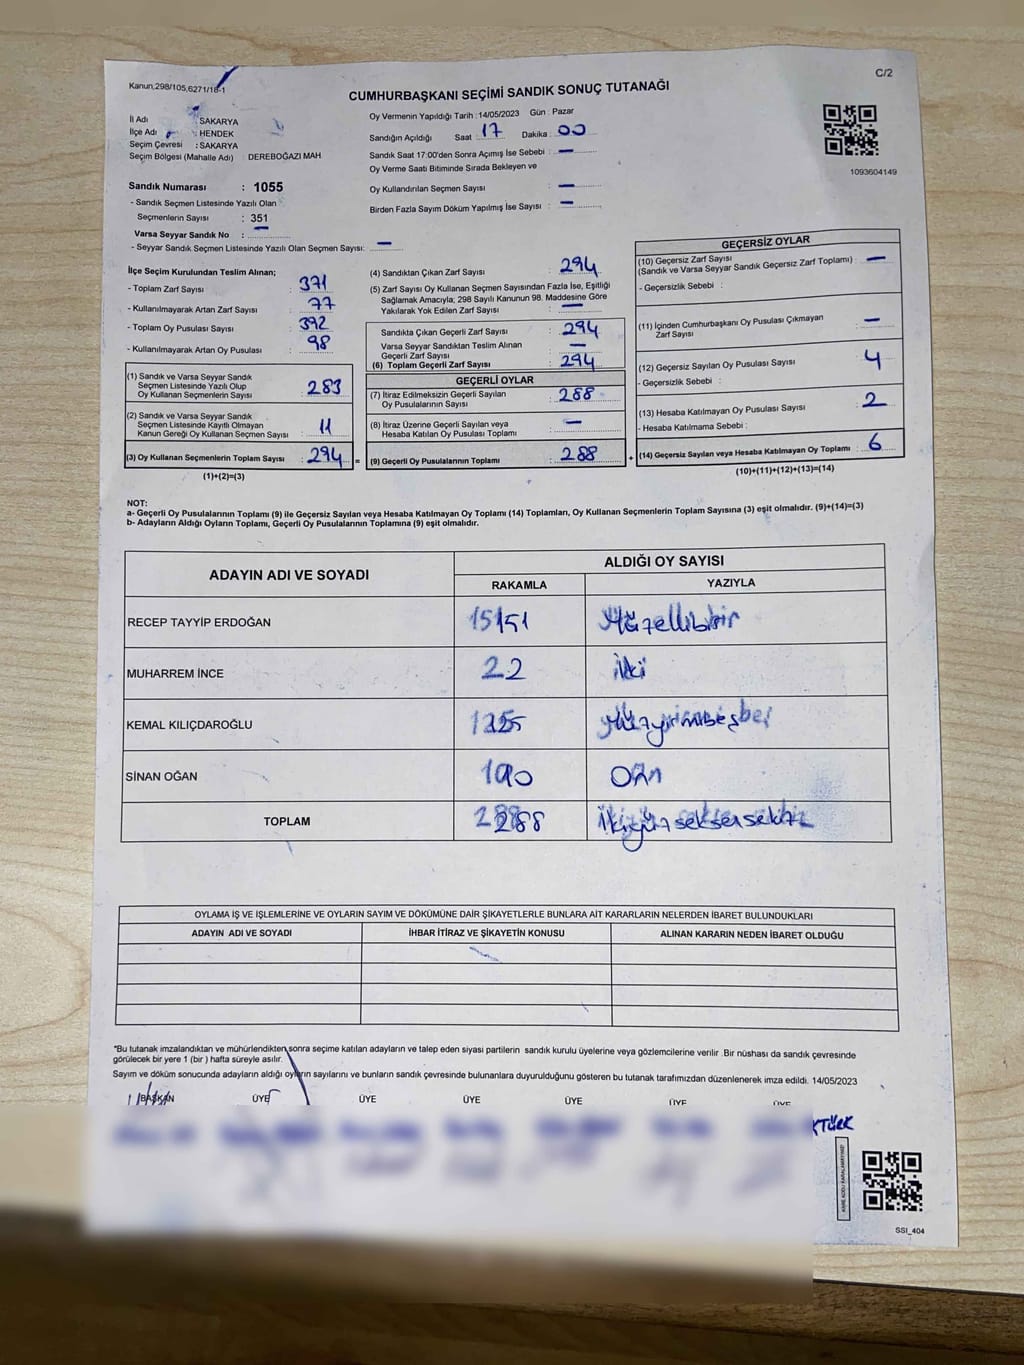 Kanun,298/105,6271/18-1
C/2
CUMHURBAŞKANI SEÇİMİ SANDIK SONUÇ TUTANAĞI
İl Adı : SAKARYA
İlçe Adı : HENDEK
Seçim Çevresi : SAKARYA
Seçim Bölgesi (Mahalle Adı) : DEREBOĞAZI MAH
Sandık Numarası : 1055
- Sandık Seçmen Listesinde Yazılı Olan
Seçmenlerin Sayısı : 351
Varsa Seyyar Sandık No : —
- Seyyar Sandık Seçmen Listesinde Yazılı Olan Seçmen Sayısı: —
Oy Vermenin Yapıldığı Tarih : 14/05/2023 Gün : Pazar
Sandığın Açıldığı Saat 17 Dakika : 00
Sandık Saat 17:00'den Sonra Açımış İse Sebebi : —
Oy Verme Saati Bitiminde Sırada Bekleyen ve
Oy Kullandırılan Seçmen Sayısı : —
Birden Fazla Sayım Döküm Yapılmış İse Sayısı : —
1093604149
İlçe Seçim Kurulundan Teslim Alınan;
- Toplam Zarf Sayısı : 371
- Kullanılmayarak Artan Zarf Sayısı : 77
- Toplam Oy Pusulası Sayısı : 392
- Kullanılmayarak Artan Oy Pusulası : 98
(1) Sandık ve Varsa Seyyar Sandık
Seçmen Listesinde Yazılı Olup
Oy Kullanan Seçmenlerin Sayısı : 283
(2) Sandık ve Varsa Seyyar Sandık
Seçmen Listesinde Kayıtlı Olmayan
Kanun Gereği Oy Kullanan Seçmen Sayısı : 11
(3) Oy Kullanan Seçmenlerin Toplam Sayısı : 294 =
(1)+(2)=(3)
(4) Sandıktan Çıkan Zarf Sayısı : 294
(5) Zarf Sayısı Oy Kullanan Seçmen Sayısından Fazla İse, Eşitliği
Sağlamak Amacıyla; 298 Sayılı Kanunun 98. Maddesine Göre
Yakılarak Yok Edilen Zarf Sayısı : —
Sandıkta Çıkan Geçerli Zarf Sayısı : 294
Varsa Seyyar Sandıktan Teslim Alınan
Geçerli Zarf Sayısı : —
(6) Toplam Geçerli Zarf Sayısı : 294
GEÇERLİ OYLAR
(7) İtiraz Edilmeksizin Geçerli Sayılan
Oy Pusulalarının Sayısı : 288
(8) İtiraz Üzerine Geçerli Sayılan veya
Hesaba Katılan Oy Pusulası Toplamı : —
(9) Geçerli Oy Pusulalarının Toplamı : 288 +
GEÇERSİZ OYLAR
(10) Geçersiz Zarf Sayısı
(Sandık ve Varsa Seyyar Sandık Geçersiz Zarf Toplamı) : —
- Geçersizlik Sebebi :
(11) İçinden Cumhurbaşkanı Oy Pusulası Çıkmayan
Zarf Sayısı : —
(12) Geçersiz Sayılan Oy Pusulası Sayısı : 4
- Geçersizlik Sebebi :
(13) Hesaba Katılmayan Oy Pusulası Sayısı : 2
- Hesaba Katılmama Sebebi :
(14) Geçersiz Sayılan veya Hesaba Katılmayan Oy Toplamı : 6
(10)+(11)+(12)+(13)=(14)
NOT:
a- Geçerli Oy Pusulalarının Toplamı (9) ile Geçersiz Sayılan veya Hesaba Katılmayan Oy Toplamı (14) Toplamları, Oy Kullanan Seçmenlerin Toplam Sayısına (3) eşit olmalıdır. (9)+(14)=(3)
b- Adayların Aldığı Oyların Toplamı, Geçerli Oy Pusulalarının Toplamına (9) eşit olmalıdır.
ADAYIN ADI VE SOYADI
ALDIĞI OY SAYISI
RAKAMLA YAZIYLA
RECEP TAYYİP ERDOĞAN 151 Yüzellibir
MUHARREM İNCE 2 iki
KEMAL KILIÇDAROĞLU 125 Yüzyirmibeş
SİNAN OĞAN 10 On
TOPLAM 288 ikiyüzseksensekiz
OYLAMA İŞ VE İŞLEMLERİNE VE OYLARIN SAYIM VE DÖKÜMÜNE DAİR ŞİKAYETLERLE BUNLARA AİT KARARLARIN NELERDEN İBARET BULUNDUKLARI
ADAYIN ADI VE SOYADI İHBAR İTİRAZ VE ŞİKAYETİN KONUSU ALINAN KARARIN NEDEN İBARET OLDUĞU
*Bu tutanak imzalandıktan ve mühürlendikten sonra seçime katılan adayların ve talep eden siyasi partilerin sandık kurulu üyelerine veya gözlemcilerine verilir .Bir nüshası da sandık çevresinde
görülecek bir yere 1 (bir ) hafta süreyle asılır.
Sayım ve döküm sonucunda adayların aldığı oyların sayılarını ve bunların sandık çevresinde bulunanlara duyurulduğunu gösteren bu tutanak tarafımızdan düzenlenerek imza edildi. 14/05/2023
BAŞKAN ÜYE ÜYE ÜYE ÜYE ÜYE ÜYE
KTÜRK
SSI_404